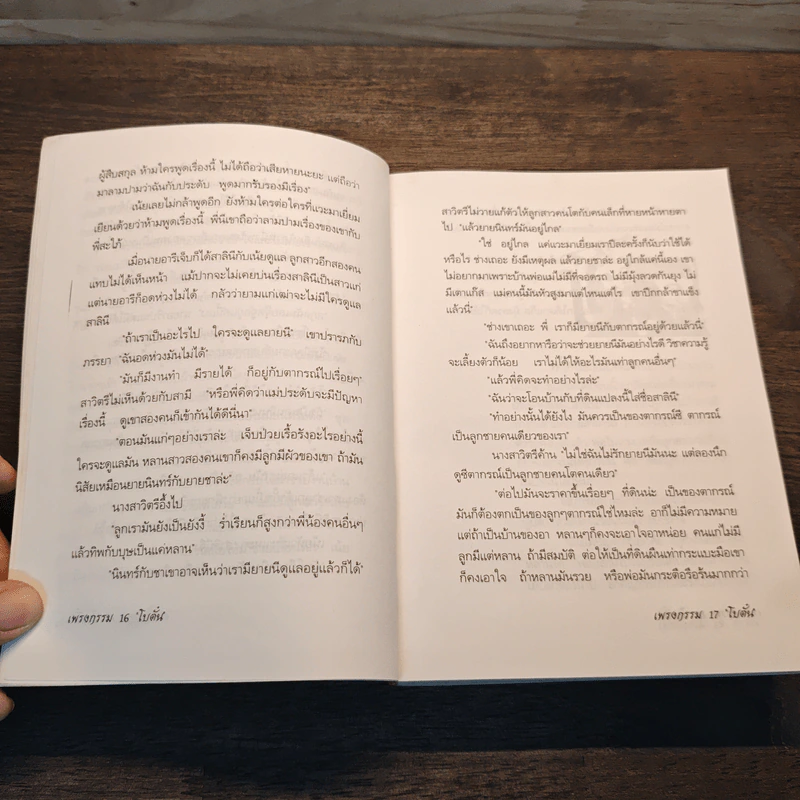 ผู้สืบสกุล ห้ามใครพูดเรื่องนี้ ไม่ได้ถือว่าเสียหายนะยะ แต่ถือว่า
มาลามปามว่าฉันกับประดับ พูดมากรับรองมีเรื่อง"
เน้ยเลยไม่กล้าพูดอีก ยังห้ามใครต่อใครที่แวะมาเยี่ยม
เยียนด้วยว่าห้ามพูดเรื่องนี้ พี่นีเขาถือว่าลามปามเรื่องของเขากับ
พี่สะใภ้
เมื่อนายอารีเจ็บก็ได้สาลินีกับเน้ยดูแล ลูกสาวอีกสองคน
แทบไม่ได้เห็นหน้า แม้ปากจะไม่เคยบ่นเรื่องสาลินีเป็นสาวแก่
แต่นายอารีก็อดห่วงไม่ได้ กลัวว่ายามแก่เฒ่าจะไม่มีใครดูแล
สาลินี
"ถ้าเราเป็นอะไรไป ใครจะดูแลยายนี" เขาปรารภกับ
ภรรยา "ฉันอดห่วงมันไม่ได้"
"มันก็มีงานทำ มีรายได้ ก็อยู่กับตากรณ์ไปเรื่อยๆ"
สาวิตรีไม่เห็นด้วยกับสามี "หรือพี่คิดว่าแม่ประดับจะมีปัญหา
เรื่องนี้ ดูเขาสองคนก็เข้ากันได้ดีนี่นา"
"ตอนมันแก่ๆอย่างเราล่ะ เจ็บป่วยเรื้อรังอะไรอย่างนี้
ใครจะดูแลมัน หลานสาวสองคนเขาก็คงมีลูกมีผัวของเขา ถ้ามัน
นิสัยเหมือนยายนินทร์กับยายชาล่ะ"
นางสาวิตรีอึ้งไป
"ลูกเรามันยังเป็นยังงี้ ร่ำเรียนก็สูงกว่าพี่น้องคนอื่นๆ
แล้วทิพกับบุษเป็นแค่หลาน"
"นินทร์กับชาเขาอาจเห็นว่าเรามียายนีดูแลอยู่แล้วก็ได้"
เพรงกรรม 16 'โบตั๋น'
สาวิตรีไม่วายแก้ตัวให้ลูกสาวคนโตกับคนเล็กที่หายหน้าหายตา
ไป "แล้วยายนินทร์มันอยู่ไกล"
"ใช่ อยู่ไกล แค่แวะมาเยี่ยมเราปีละครั้งก็นับว่าใช้ได้
หรือไร ช่างเถอะ ยังมีเหตุผล แล้วยายชาล่ะ อยู่ใกล้แค่นี้เอง เขา
ไม่อยากมาเพราะบ้านพ่อแม่ไม่มีที่จอดรถ ไม่มีมุ้งลวดกันยุง ไม่
มีเตาแก๊ส แม่คนนี้มันหัวสูงมาแต่ไหนแต่ไร เขาปีกกล้าขาแข็ง
แล้วนี่"
"ช่างเขาเถอะ พี่ เราก็มียายนีกับตากรณ์อยู่ด้วยแล้วนี่"
"ฉันถึงอยากหารือว่าจะช่วยยายนีมันอย่างไรดี วิชาความรู้
จะเลี้ยงตัวก็น้อย เราไม่ได้ให้อะไรมันเท่าลูกคนอื่นๆ"
"แล้วพี่คิดจะทำอย่างไรล่ะ"
"ฉันว่าจะโอนบ้านกับที่ดินแปลงนี้ใส่ชื่อสาลินี"
"ทำอย่างนั้นได้ยังไง มันควรเป็นของตากรณ์ซิ ตากรณ์
เป็นลูกชายคนเดียวของเรา"
นางสาวิตรีค้าน "ไม่ใช่ฉันไม่รักยายนีมันนะ แต่ลองนึก
ดูซิตากรณ์เป็นลูกชายคนโตคนเดียว"
"ต่อไปมันจะราคาขึ้นเรื่อยๆ ที่ดินน่ะ เป็นของตากรณ์
มันก็ต้องตกเป็นของลูกๆตากรณ์ใช่ไหมล่ะ อาก็ไม่มีความหมาย
แต่ถ้าเป็นบ้านของอา หลานๆก็คงจะเอาใจอาหน่อย คนแก่ไม่มี
ลูกมีแต่หลาน ถ้ามีสมบัติ ต่อให้เป็นที่ดินผืนเท่ากระแบะมือเขา
ก็คงเอาใจ ถ้าหลานมันรวย หรือพ่อมันกระตือรือร้นมากกว่า
เพรงกรรม 17 'โบตั๋น'